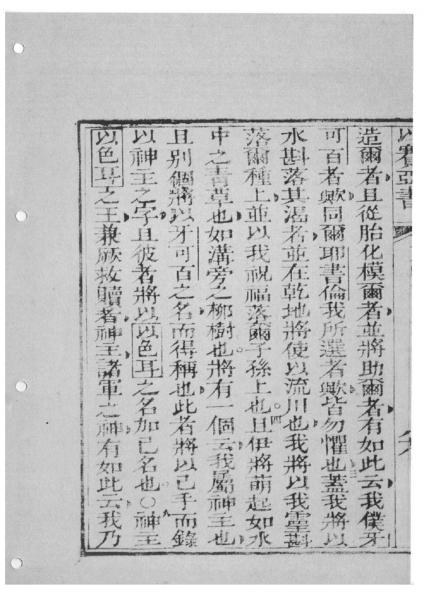 以賽亞書
造爾者且從胎化模爾者並將助爾者有如此云我僕牙
可百者歟同爾耶書倫我所選者歟皆勿懼也蓋我將以
水斟落其渴者並在乾地將使以流川也我將以我靈斟
落爾種上並以我祝福落爾子孫上也四且伊將萌起如水
中之青草也如溝旁之柳樹也將有一個云我屬神主也
且別個將以牙可百之名而得稱也此者將以己手而錄
以神主之字且彼者將以以色耳之名加己名也○神主
以色耳之王兼厥救贖者神主諸軍之神有如此云我乃